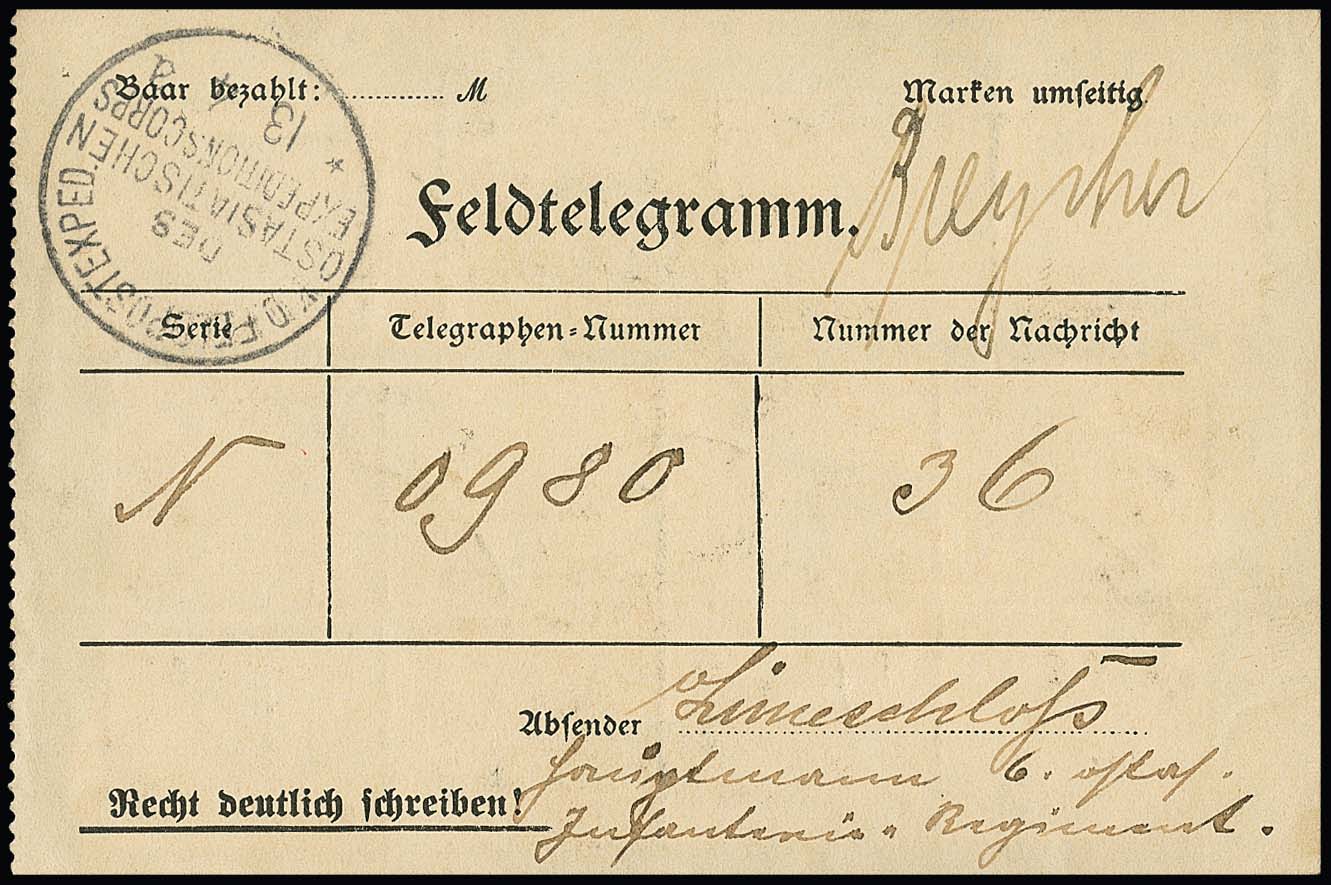 Baar bezahlt: ............ M
Marken umseitig
K.D. FELDPOSTEXPED.
DES
OSTASIATISCHEN
EXPEDITIONSCORPS
13
Feldtelegramm.
Serie Telegraphen-Nummer Nummer der Nachricht
N 0980 36
Absender
Hauptmann 6. ostas.
Recht deutlich schreiben!
Infanterie-Regiment.